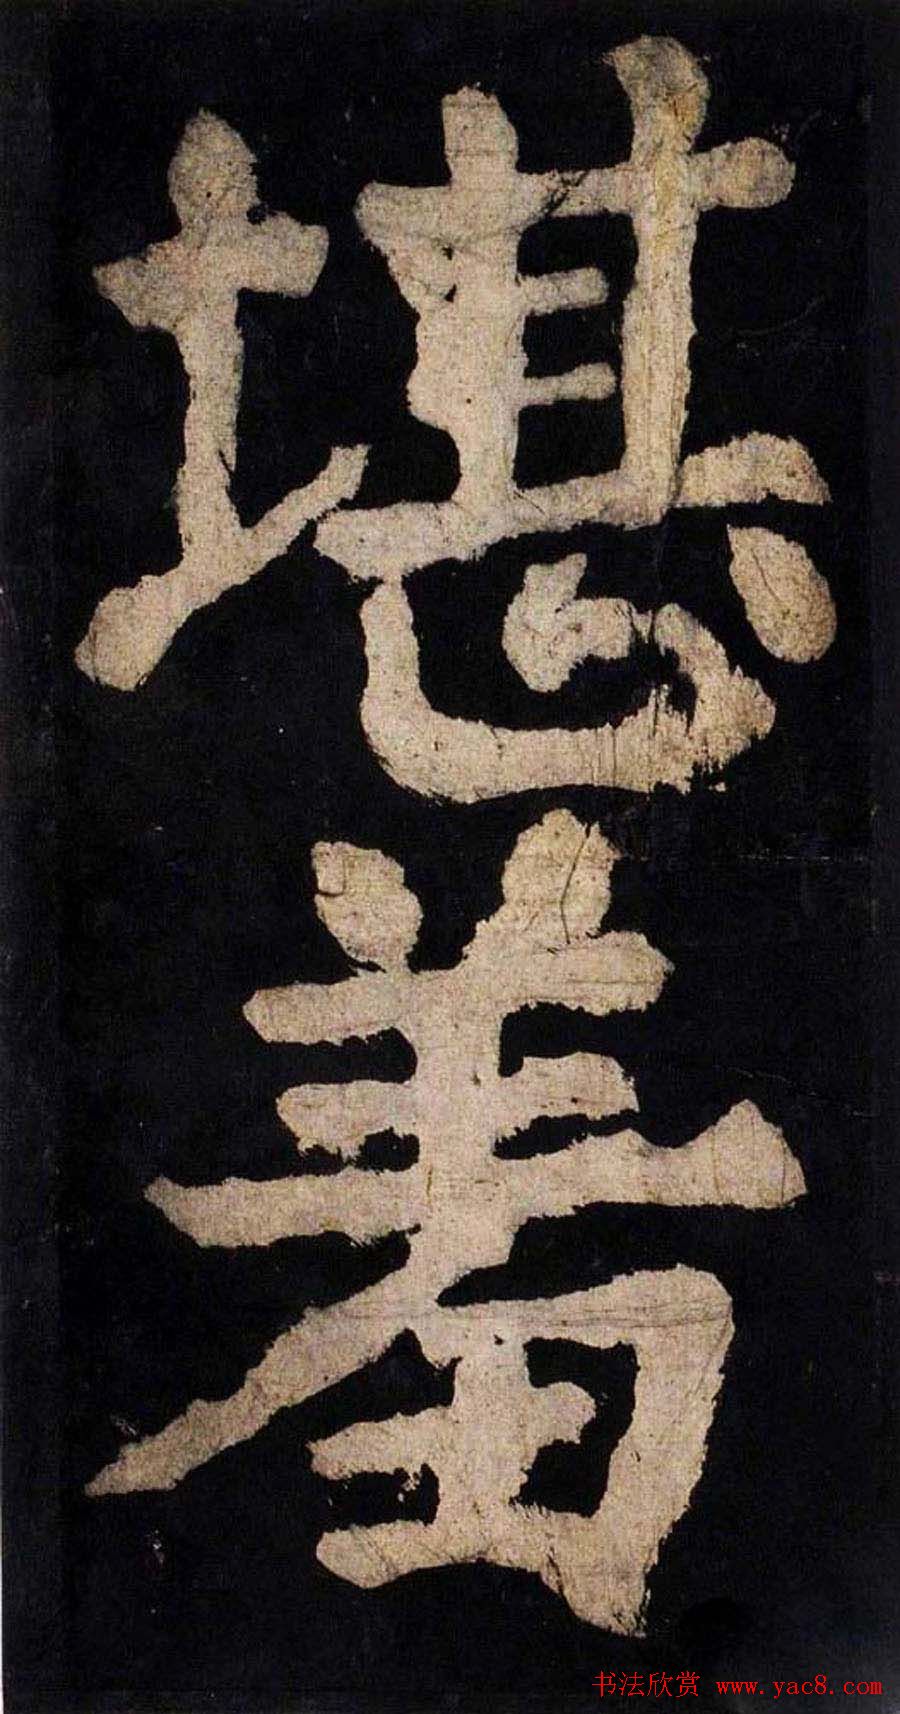 堪羞
书法欣赏 www.yac8.com